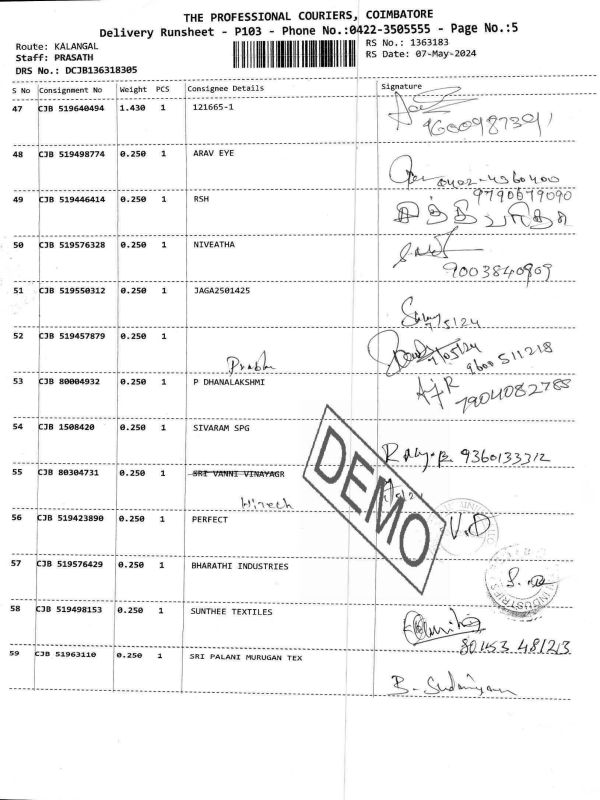 THE PROFESSIONAL COURIERS, COIMBATORE
Delivery Runsheet - P103 - Phone No.:0422-3505555 - Page No.:5
Route: KALANGAL RS No.: 1363183
Staff: PRASATH RS Date: 07-May-2024
DRS No.: DCJB136318305
S No Consignment No Weight PCS Consignee Details Signature
47 CJB 519640494 1.430 1 121665-1
9600987391
48 CJB 519498774 0.250 1 ARAV EYE
9790679090
49 CJB 519446414 0.250 1 RSH
50 CJB 519576328 0.250 1 NIVEATHA
9003840909
51 CJB 519550312 0.250 1 JAGA2501425
7/5/24
52 CJB 519457879 0.250 1
7/05/24
9600511218
Prabhu
53 CJB 80004932 0.250 1 P DHANALAKSHMI
7904082785
54 CJB 1508420 0.250 1 SIVARAM SPG
9360133312
55 CJB 80304731 0.250 1 SRI VANNI VINAYAGR
7/5/24
Hitech
56 CJB 519423890 0.250 1 PERFECT V.D
57 CJB 519576429 0.250 1 BHARATHI INDUSTRIES
58 CJB 519498153 0.250 1 SUNTHEE TEXTILES
80153 481213
59 CJB 51963110 0.250 1 SRI PALANI MURUGAN TEX
DEMO